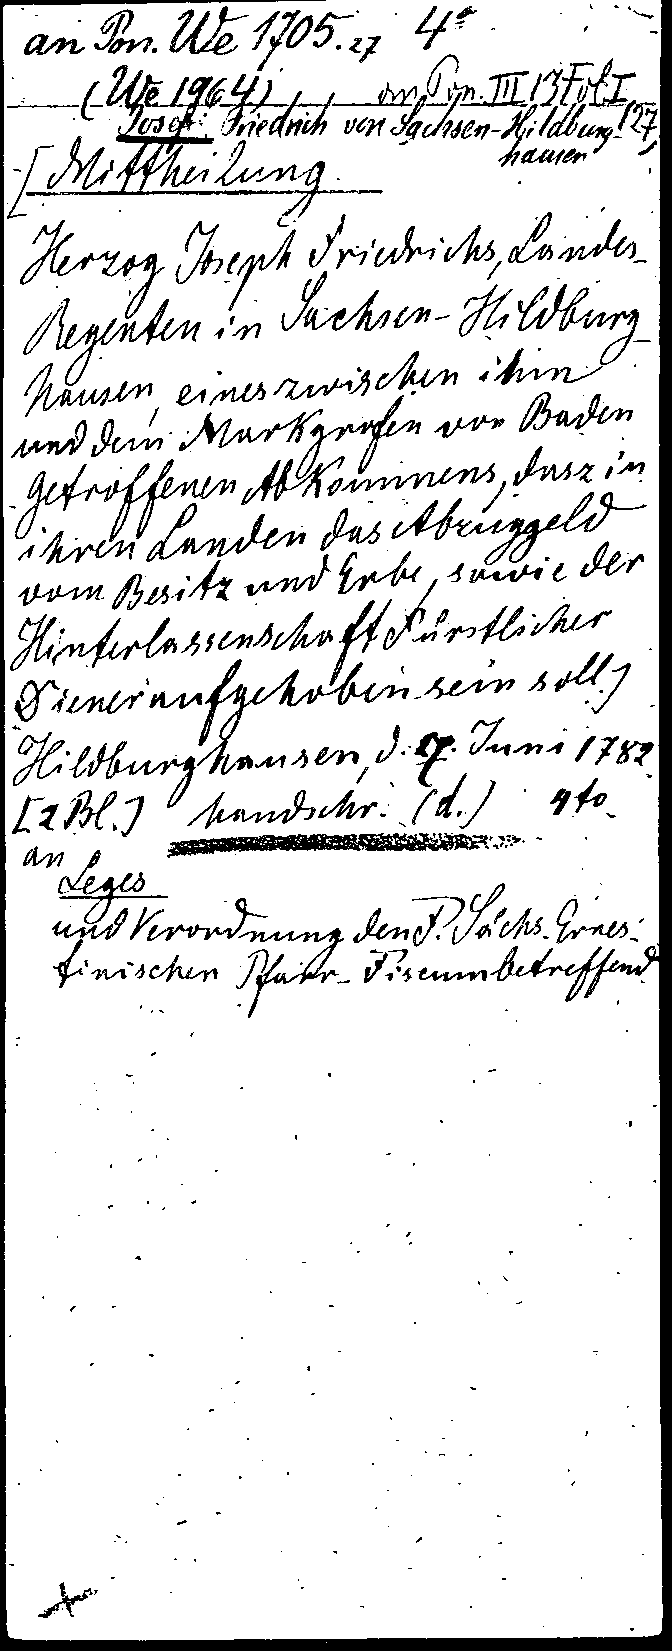 an Pon. We 1705.27 4°
(We 1964), an Pon. III 13 Fol. I
Josef Friedrich von Sachsen-Hildburg- 127,
hausen
[Mittheilung
Herzog Joseph Friedrichs, Landes-
Regenten in Sachsen-Hildburg-
hausen, eines zwischen ihm
und dem Markgrafen von Baden
getroffenen Abkommens, dasz in
ihren Landen das Abzuggeld
vom Besitz und Erbe, sowie der
Hinterlassenschaft Fürstlicher
Diener aufgehoben sein soll.]
Hildburghausen, d. 7. Juni 1782
[2 Bl.] handschr. (d.) 4to.
an
Leges
und Verordnung den F. Sächs. Ernes-
tinischen Pfarr-Fiscum betreffend